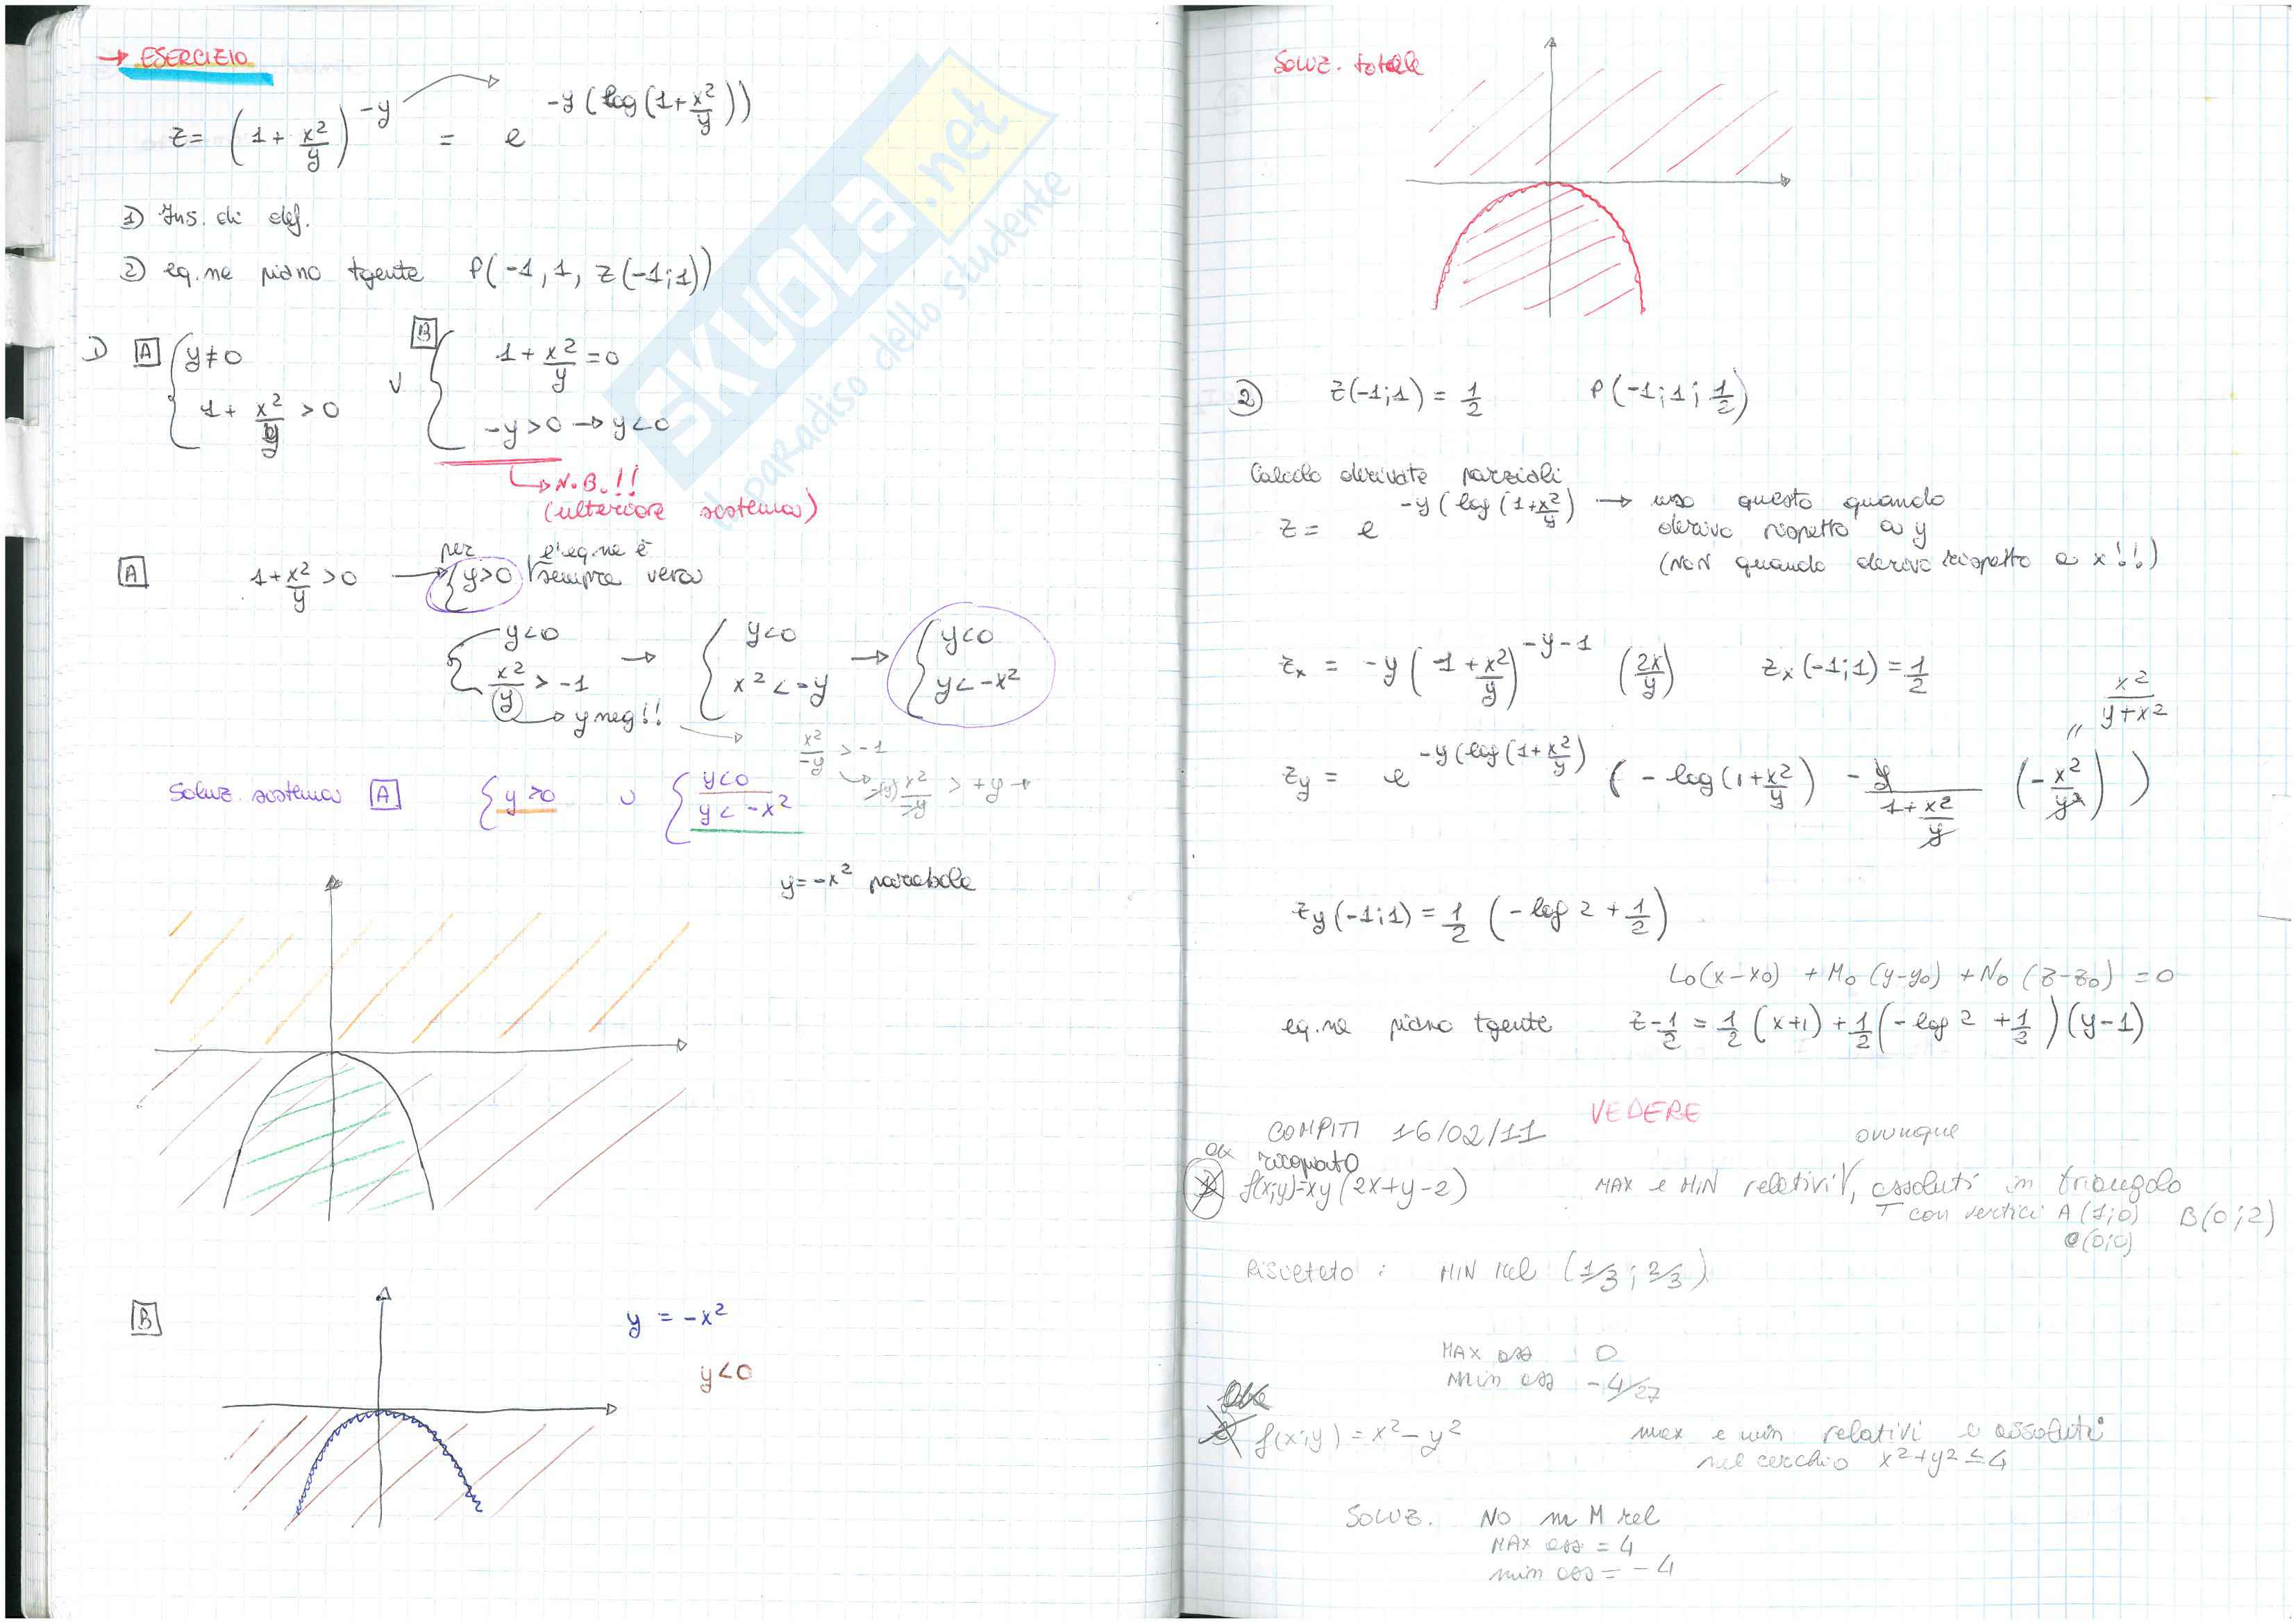 → ESERCIZIO
z = (1 + x²/y)^-y = e^-y(log(1+x²/y))
1) Ins. di def.
2) eq.ne piano tgente P(-1, 1, z(-1;1))
1) A { y≠0 ∨ B { 1 + x²/y = 0
1 + x²/y > 0 -y>0 → y<0
↳ N.B.!!
(ulteriore sistema)
A 1+x²/y > 0 → per { y>0 l'eq.ne è sempre vera
{ y<0 → { y<0 → { y<0
x²/y > -1 x² < -y y < -x²
→ y neg!!
x²/-y > -1
-(y) x²/-y > +y →
Soluz. sistema A { y>0 ∪ { y<0
y < -x²
y = -x² parabola
B
y = -x²
y<0
Soluz. totale
2) z(-1;1) = 1/2 P(-1;1;1/2)
Calcolo derivate parziali
z = e^-y(log(1+x²/y) → uso questo quando
derivo rispetto a y
(NON quando derivo rispetto a x!!)
z_x = -y(1+x²/y)^-y-1 (2x/y) z_x(-1;1) = 1/2
x²/y+x²
z_y = e^-y(log(1+x²/y) (-log(1+x²/y) - y/1+x²/y (-x²/y²))
z_y(-1;1) = 1/2 (-log 2 + 1/2)
L₀(x-x₀) + M₀(y-y₀) + N₀(z-z₀) = 0
eq.ne piano tgente z-1/2 = 1/2 (x+1) + 1/2(-log 2 + 1/2)(y-1)
VEDERE
COMPITI 16/02/11
ok ricopiato
ovunque
1 f(x;y)=xy(2x+y-2) MAX e MIN relativi, assoluti in triangolo
T con vertici A(1;0) B(0;2)
C(0;0)
Risultato : MIN rel (1/3; 2/3)
MAX ass 0
Min ass -4/27
2 f(x;y) = x²-y² max e min relativi e assoluti
nel cerchio x²+y²≤4
SOLUZ. NO m M rel
MAX ass = 4
min ass = -4
SKUOLA.net
il paradiso dello studente